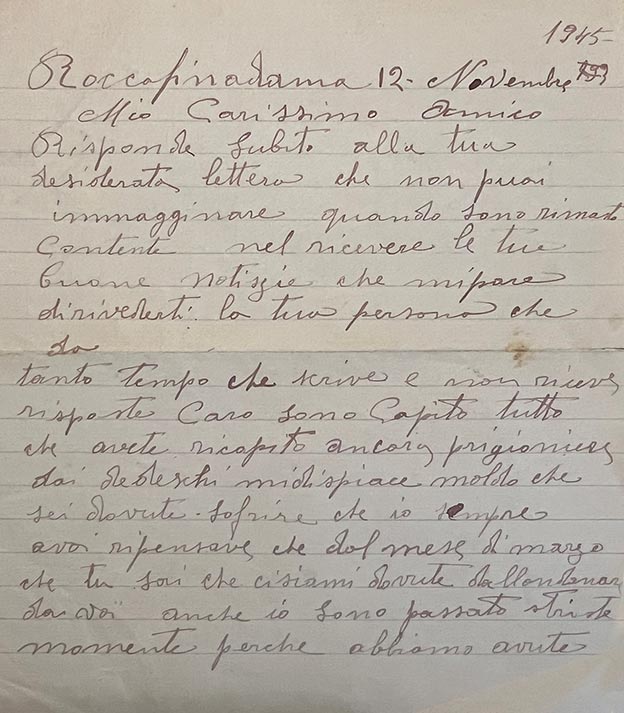 1945-
Roccapinadama 12- Novembre
Mio Carissimo Amico
Risponde subito alla tua
desiderata lettera che non puoi
immagginare quando sono rimasto
Contente nel ricevere le tue
buone notiszie che mipare
dirivederti la tua persona che
da
tanto tempo che scrive e non riceve
risposte Caro sono Capito tutto
che avete ricapito ancora prigioniere
dai tedeschi midispiace moldo che
sei dovute sofrire che io sempre
avoi ripensave che dal mese di marzo
che tu sai che cisiami dovute dallondanar
da voi anche io sono passato striste
momente perche abbiamo avute